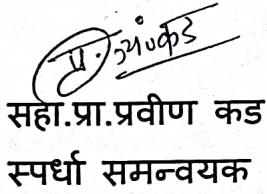 सहा.प्रा.प्रवीण कड
स्पर्धा समन्वयक